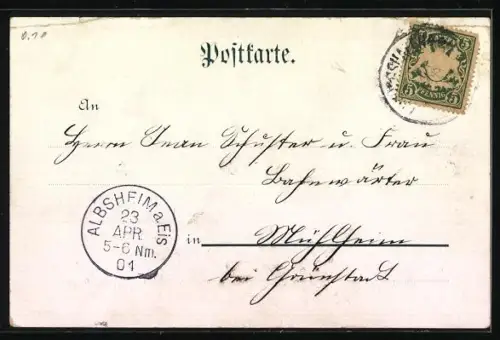 0.10
Postkarte.
5
5 PFENNIG 5
An
Herrn Jean Schuster u. Frau
Bahnwärter
in Mühlheim
bei Grünstadt
ALBSHEIM a. Eis
23
APR
5-6 Nm.
01